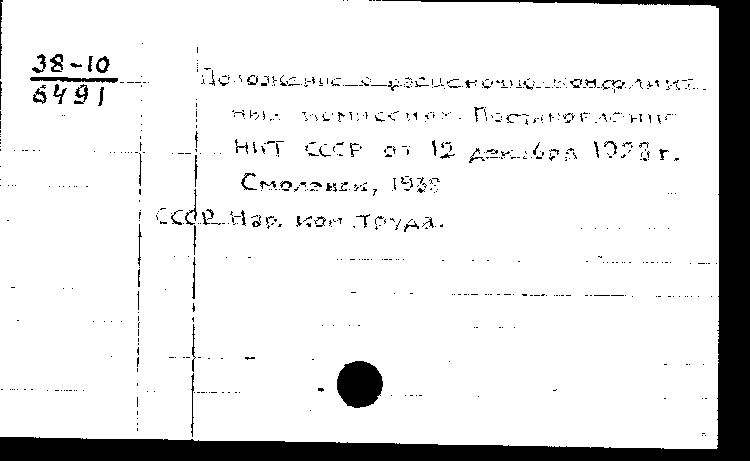 38-10
6491
Положение о расценочно-конфликт
ных комиссиях. Постановление
НКТ СССР от 12 декабря 1928 г.
Смоленск, 1938
СССР Нар. ком. труда.